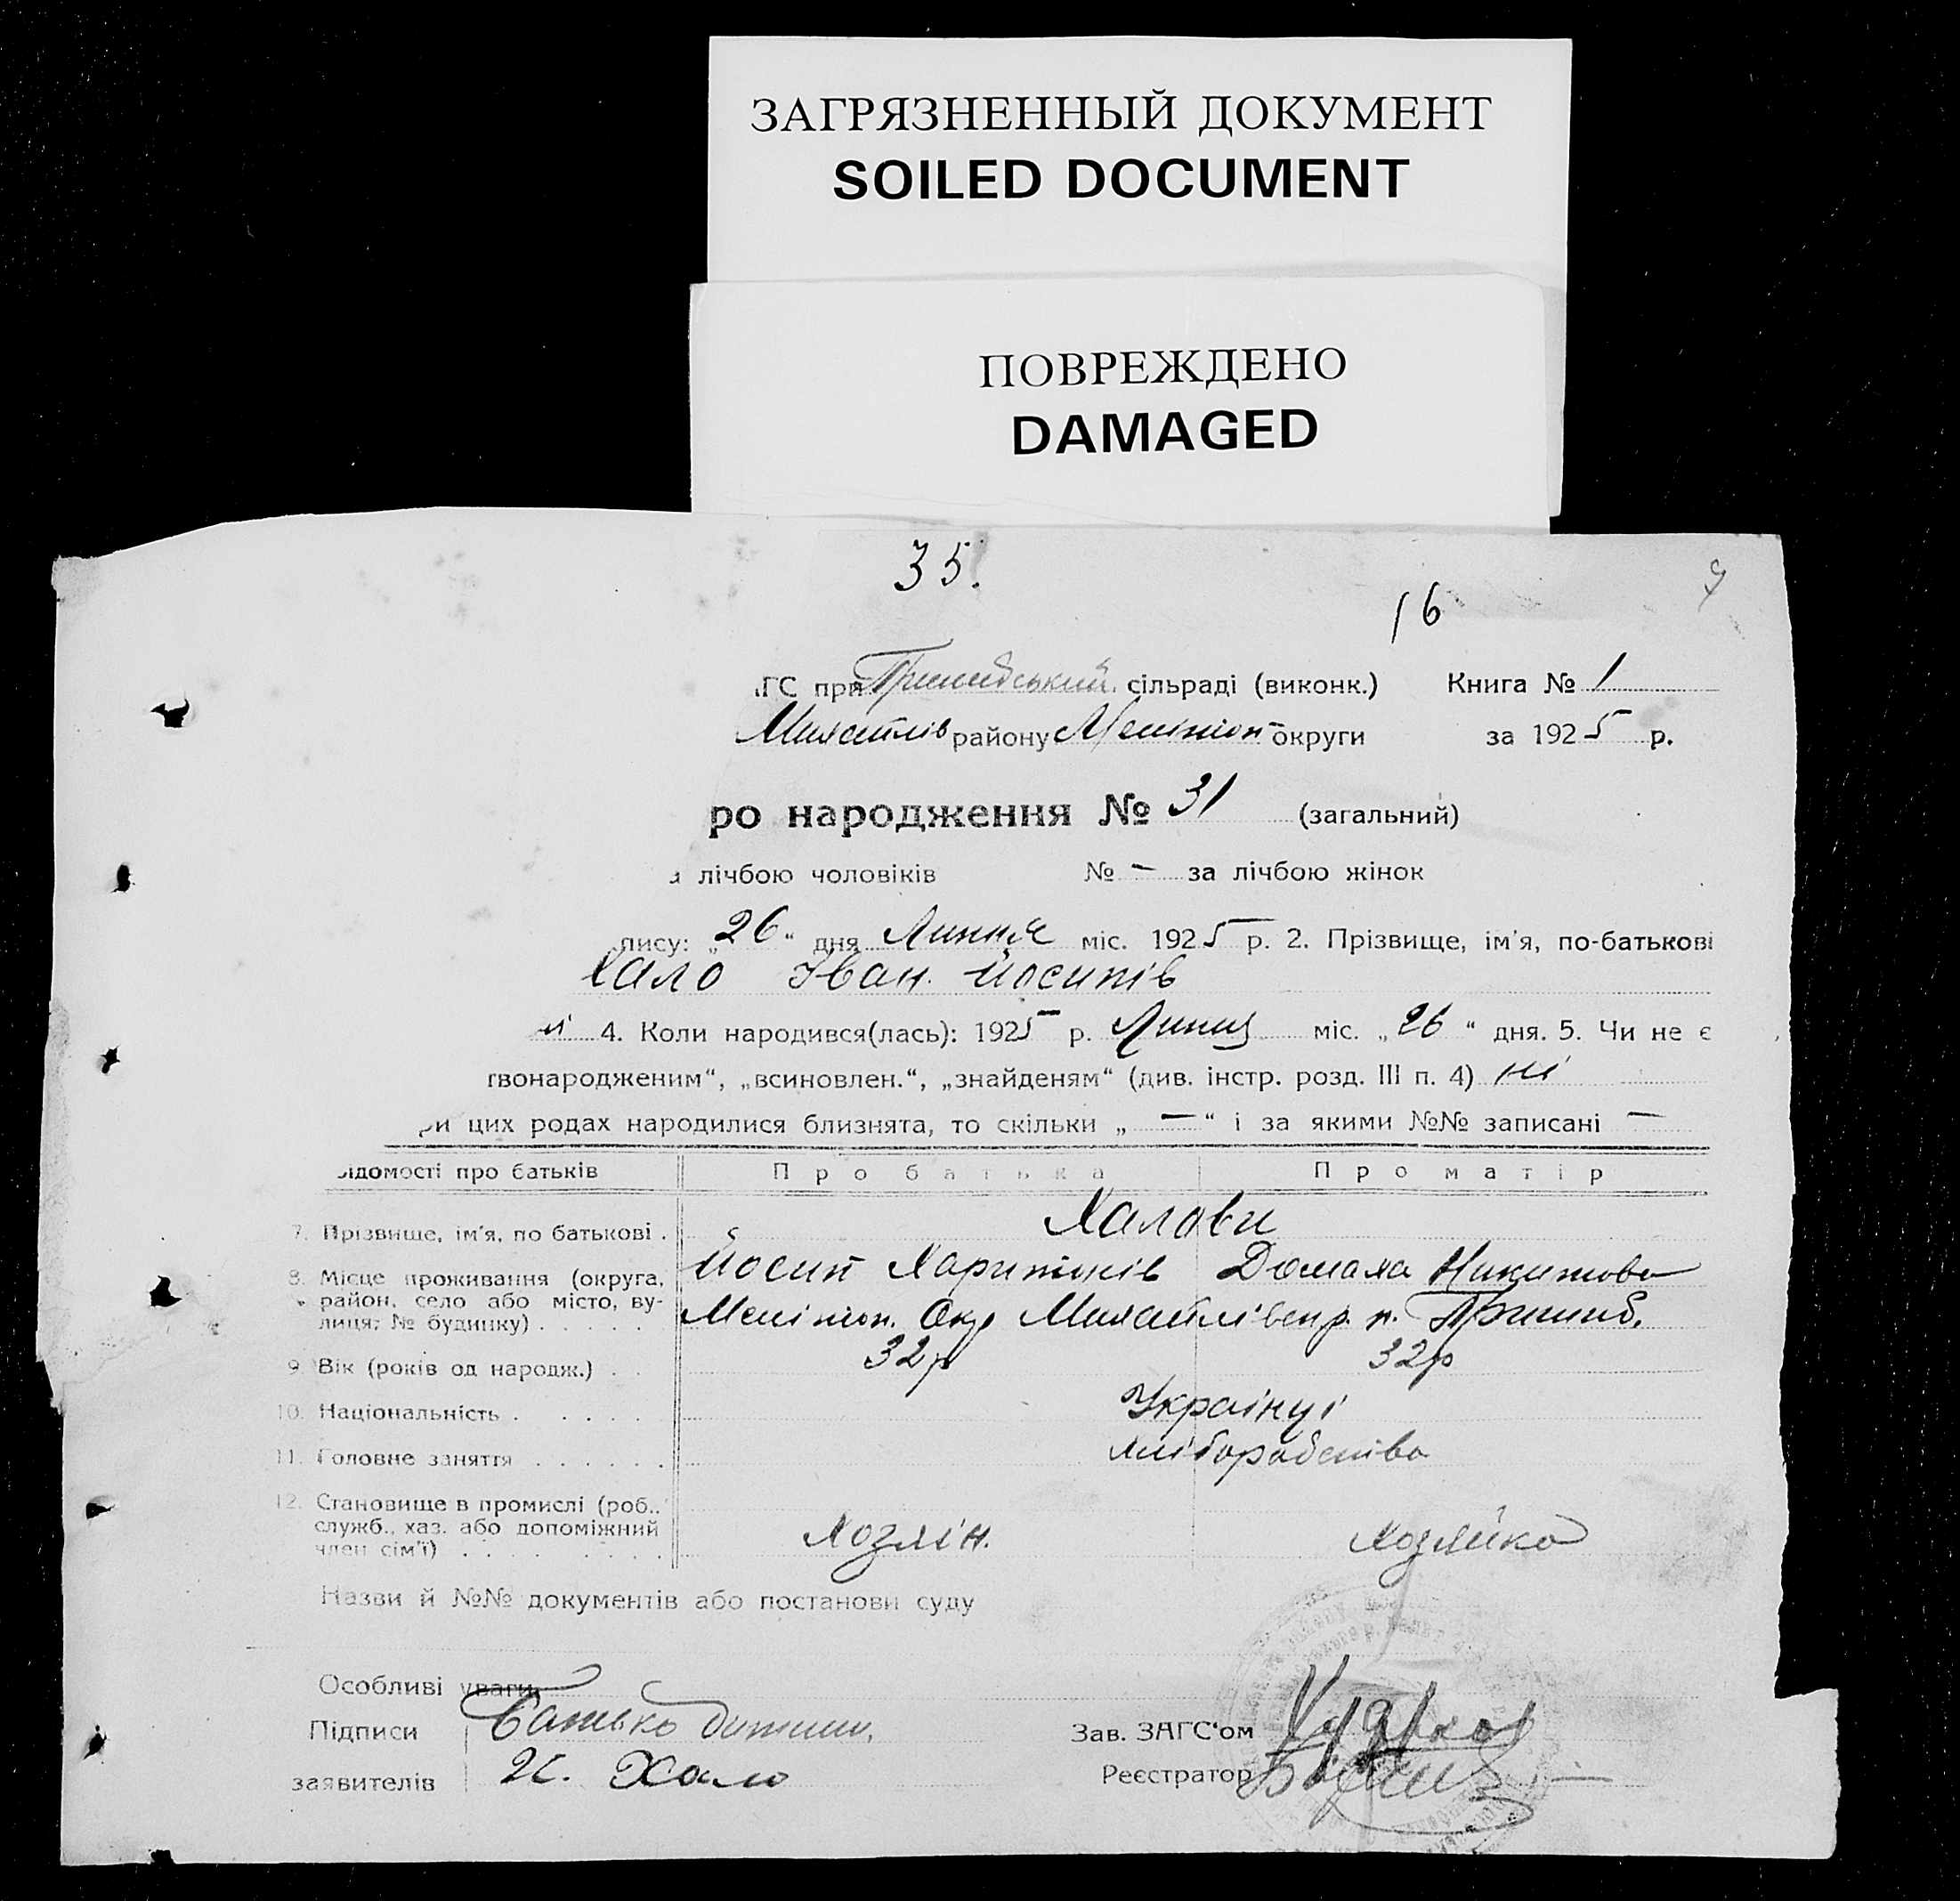 ЗАГРЯЗНЕННЫЙ ДОКУМЕНТ
SOILED DOCUMENT
ПОВРЕЖДЕНО
DAMAGED
35.
16
ГС при Пришибський сільраді (виконк.) Книга № 1
Михайлів району Мелітоп округи за 1925 р.
ро народження № 31 (загальний)
лічбою чоловіків № — за лічбою жінок
пису: „26“ дня Липня міс. 1925 р. 2. Прізвище, ім'я, по-батькові
Хало Іван Йосипів
4. Коли народився(лась): 1925 р. Липця міс. „26“ дня. 5. Чи не є
твонародженим“, „всиновлен.“, „знайденям“ (див. інстр. розд. III п. 4) ні
ри цих родах народилися близнята, то скільки „—“ і за якими №№ записані —
ідомості про батьків Про батька Про матір
Халови
7. Прізвище, ім'я, по батькові . Йосип Харитонів Домаха Никитова
8. Місце проживання (округа,
район, село або місто, ву-
лиця; № будинку) . . . . . Мелітоп. Окр Михайлівськ р. Пришиб.
9. Вік (років од народж.) . . 32р 32р
10. Національність . . . . . Українці
11. Головне заняття . . . . . . хліборобство
12. Становище в промислі (роб.,
служб., хаз. або допоміжний
член сім'ї) . . . . . . . . Хозяін. Хозяйка
Назви й №№ документів або постанови суду
Особливі уваги
Підписи Батько дитини.
Зав. ЗАГС'ом
заявителів Й. Хало
Реєстратор